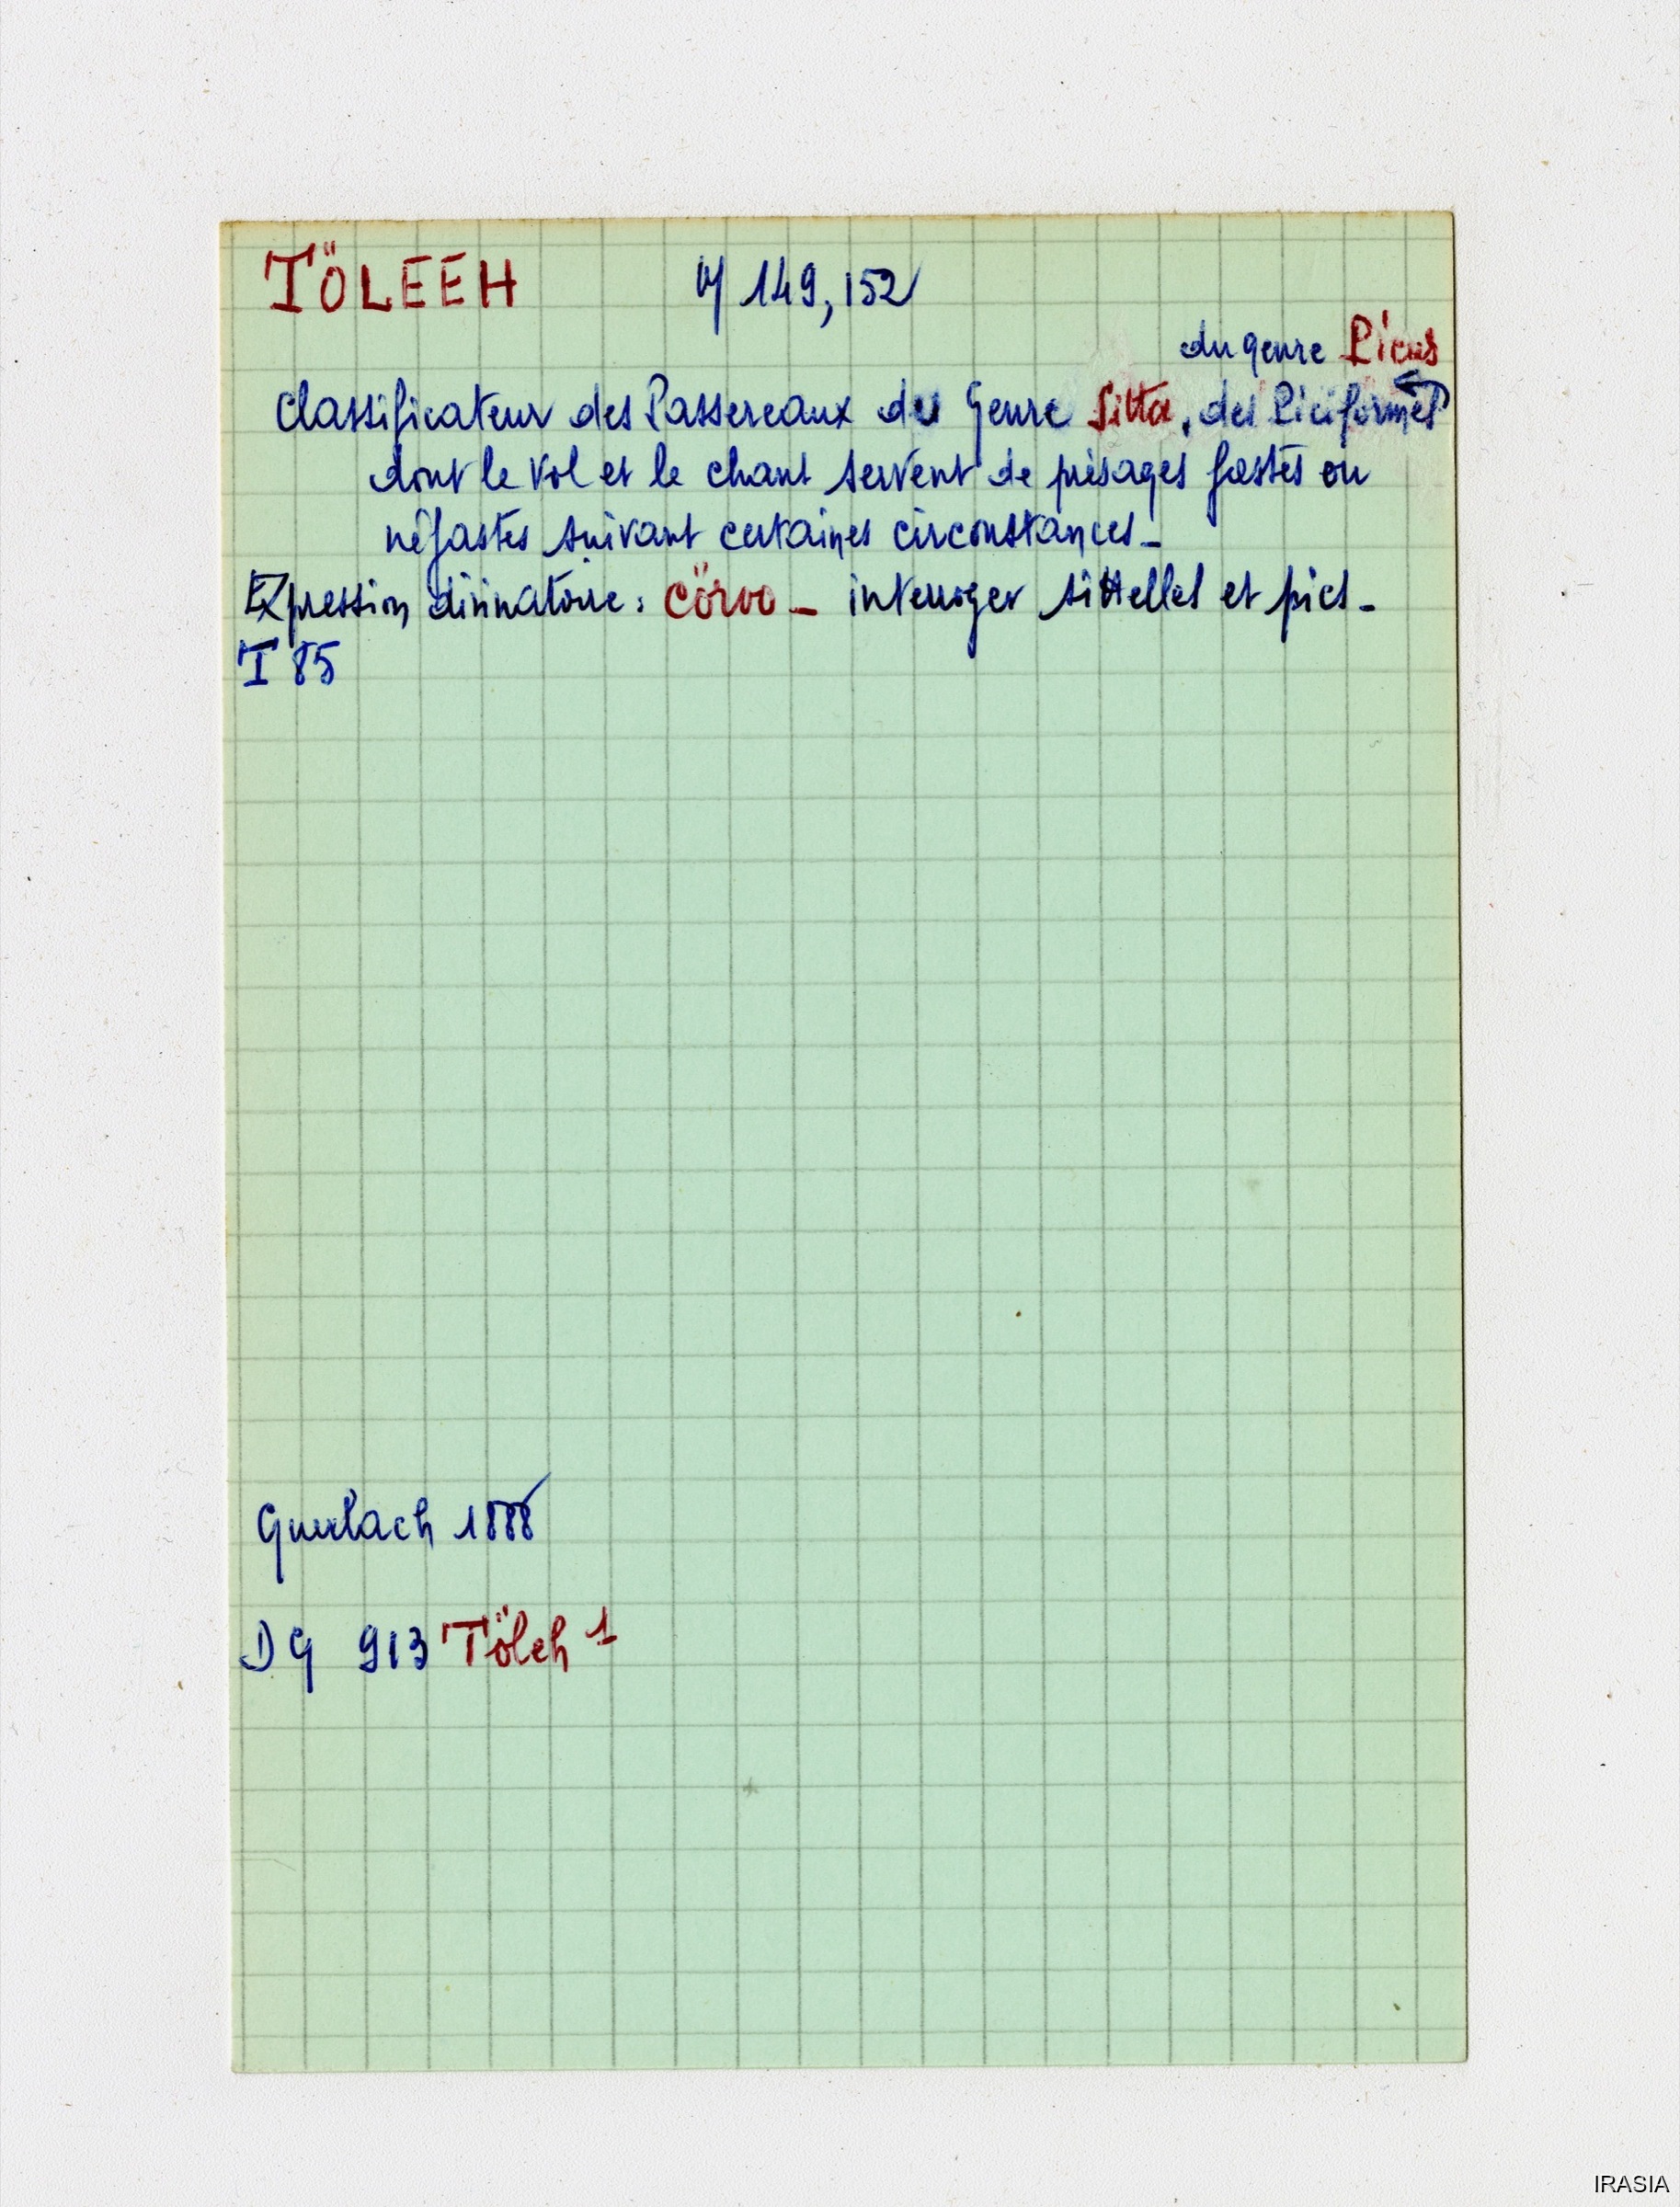 TÖLEEH M 149, 152
du genre Picus
Classificateur des Passereaux du Genre Sitta, des Piciformes
dont le vol et le chant servent de présages fastes ou
néfastes suivant certaines circonstances_
Expression divinatoire : cörvo _ interroger sittelles et pics_
T 85
Guerlach 1888
DG 913 Töleh 1
IRASIA